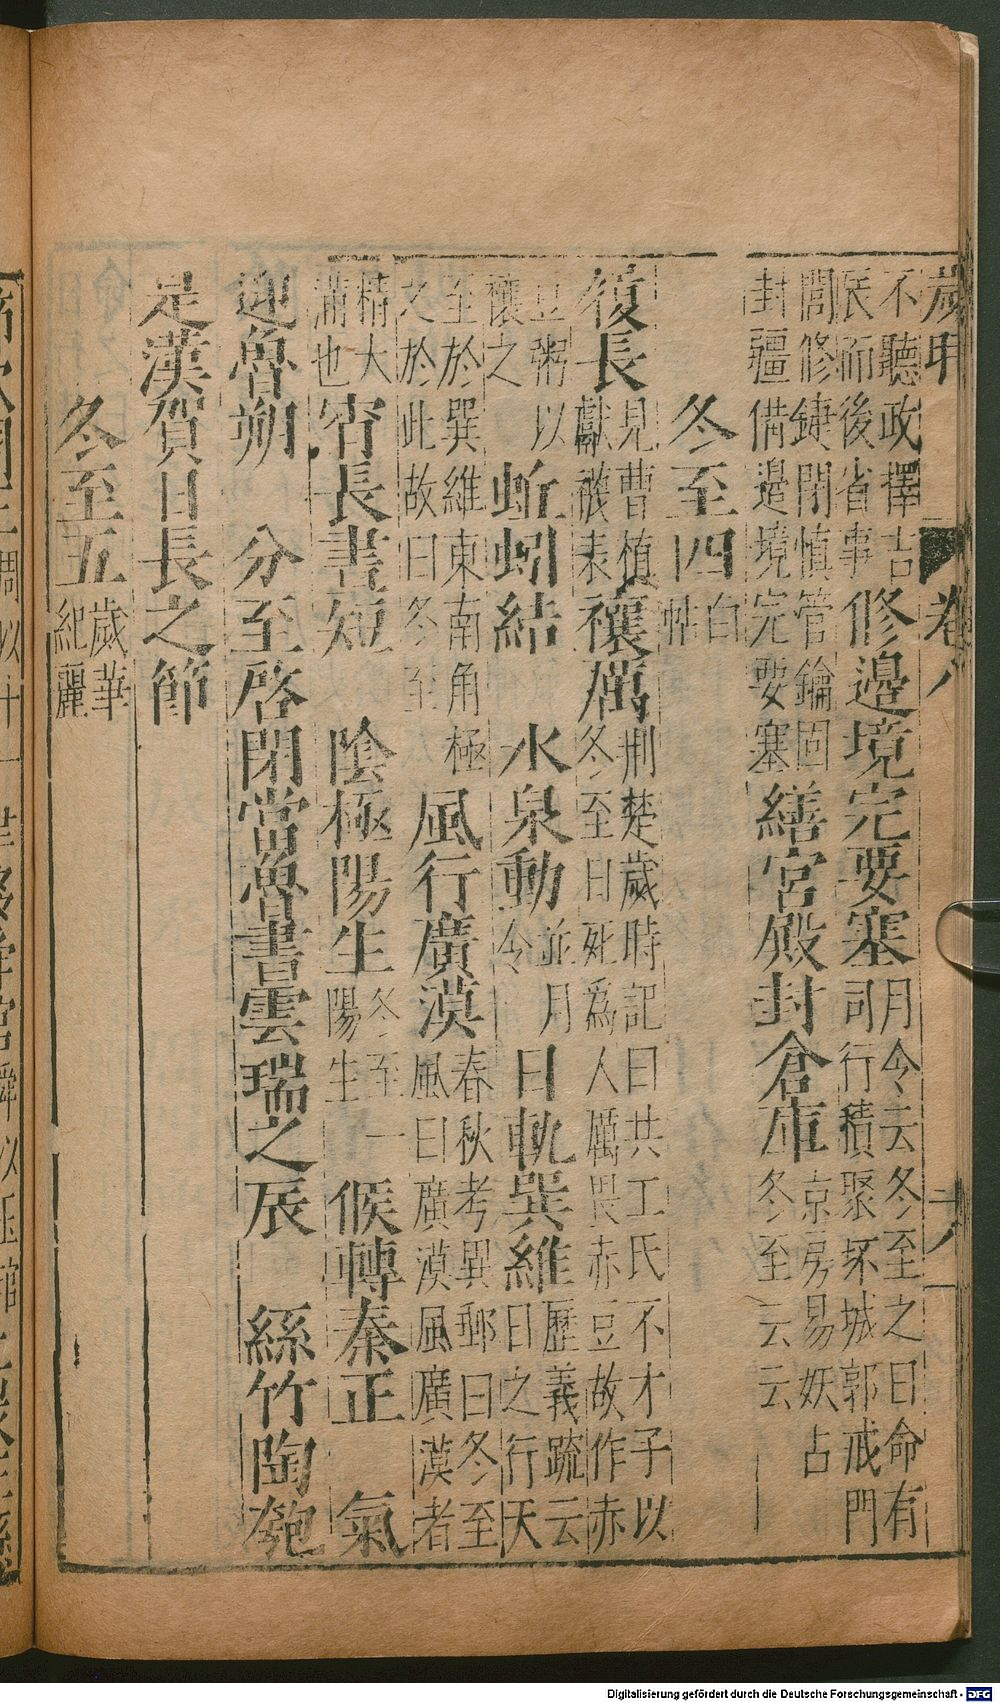 歲
卷八
不聽政擇吉
民而後省事
修邊境完要塞
月令云冬至之日命有
司行積聚坏城郭戒門
閭修鍵閉慎管鑰固
封疆備邊境完要塞
繕宮殿封倉庫
京房易妖占
冬至云云
冬至四
白
帖
履長
見曹植
獻襪表
禳厲
荆楚歲時記曰共工氏不才子以
冬至日死爲人厲畏赤豆故作赤
豆粥以
禳之
蚯蚓結
水泉動
並月
令
日軌巽維
歷義疏云
日之行天
至於巽維東南角極
之於此故曰冬至
風行廣漠
春秋考異郵曰冬至
風曰廣漠風廣漠者
精大
滿也
宵長晝短
陰極陽生
冬至一
陽生
候轉秦正
氣
迎魯朔
分至啓閉當魯書雲瑞之辰
絲竹陶匏
是漢賀日長之節
冬至五
歲華
紀麗
Digitalisierung gefördert durch die Deutsche Forschungsgemeinschaft - DFG